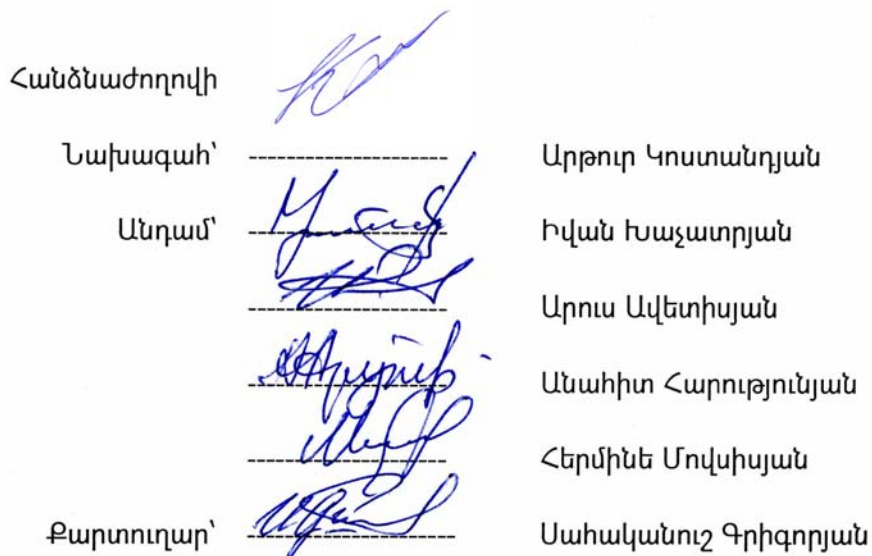 Հանձնաժողովի
Նախագահ՝ Արթուր Կոստանդյան
Անդամ՝ Իվան Խաչատրյան
Արուս Ավետիսյան
Անահիտ Հարությունյան
Հերմինե Մովսիսյան
Քարտուղար՝ Սահականուշ Գրիգորյան